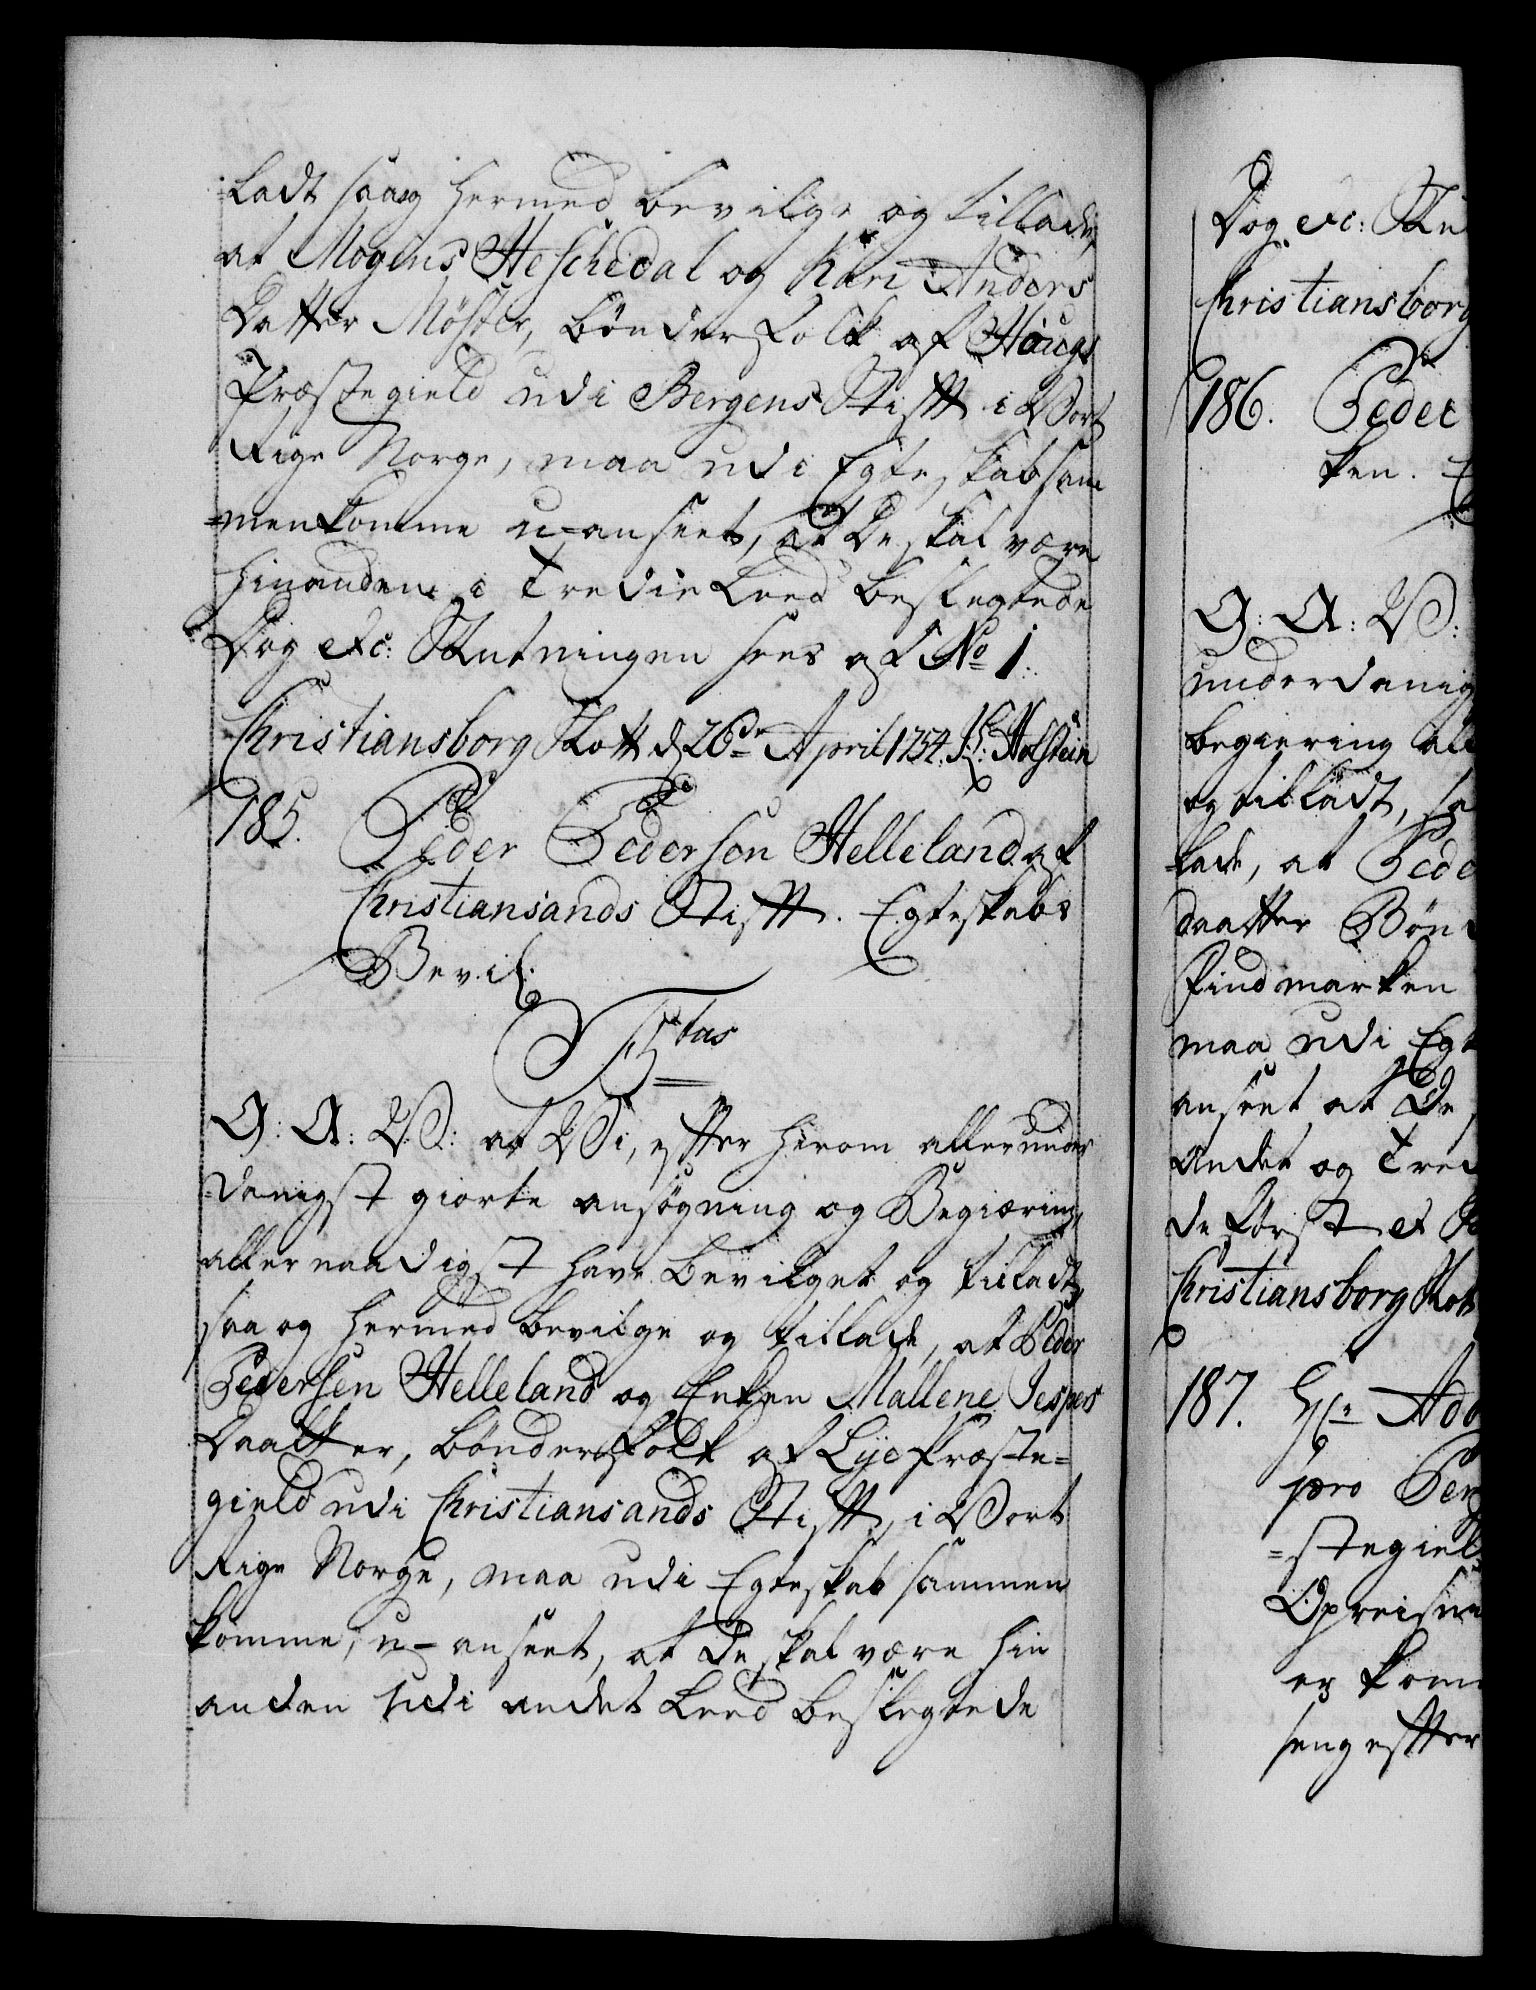 -ladt saa og hermed bevilge og tillade,
at Mogens Heschedal og Kari Anders
Datter Møster, bønderfolk af Haugs
Præstegield udi Bergens Stifft i Vort
Rige Norge, maa udi Egteskab sam
-menkomme u-anseet, at De skal være
hinanden i Tredie Leed beslegtede
Dog etc: Slutningen sees af No 1.
Christiansborg Slott d 26de April 1754. J: L: Holstein
185. Peder Pedersen Helleland af
Christiansands Stifft. Egteskabs
Bevil:
F 5tus
G: A: V: at Vi, effter herom allerunder
-danigst giorte ansøgning og Begiæring,
allernaadigst have bevilget og tilladt,
saa og hermed bevilge og tillade, at Peder
Pedersen Helleland og Enken Mallene Jespers
Daatter, bønderfolk af Lye Præste-
gield udi Christiansands Stifft, i Vort
Rige Norge, maa udi Egteskab sammen
komme, u-anseet, at de skal være hin
anden udi andet Leed beslegtede
Dog etc: Slu
Christiansborg
186. Peder
ken. E
G: A: V:
underdanig
begiering all
og tilladt, sa
-lade, at Pede
daatter Bøn
Findmarken
maa udi Egt
anseet at De
andet og Tred
de først et
Christiansborg Slot
187. Hr Ado
pro Per
-stegiel
Opreisn
er kom
seng effter